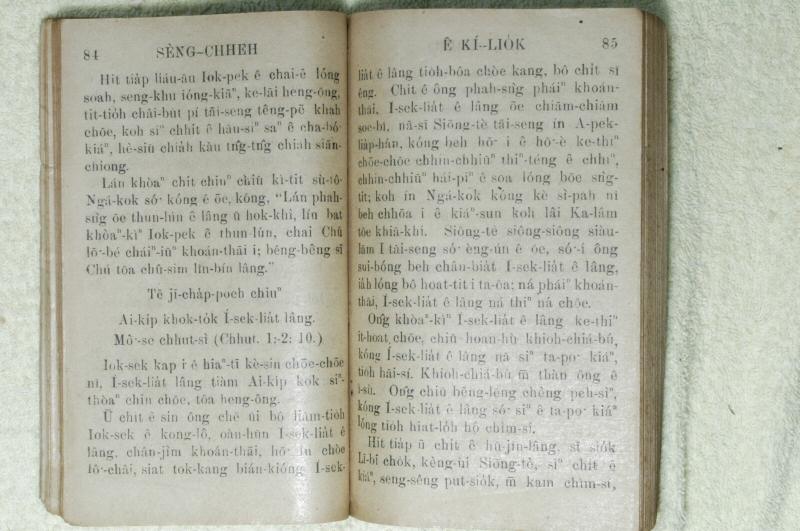 84 SÈNG-CHHEH
Hit tia̍p liáu-āu Iok-pek ê chai-ē lóng
soah, seng-khu ióng-kiāⁿ, ke-lāi heng-ōng,
tit-tio̍h châi-bu̍t pí tāi-seng têng-pē khah
chōe, koh siⁿ chhit ê hāu-siⁿ saⁿ ê cha-bó͘-
kiáⁿ, hè-siū chia̍h kàu tn̂g-tn̂g chiah siān-
chiong.
Lán khòaⁿ chit chiuⁿ chiū kì-tit sù-tô͘
Ngá-kok só͘ kóng ê ōe, kóng, “Lán phah-
sǹg ōe thun-lún ê lâng ū hok-khì, lín bat
khòaⁿ-kìⁿ Iok-pek ê thun-lún, chai Chú
lō͘-bé cháiⁿ-iūⁿ khoán-thāi i; bêng-bêng sī
Chú tōa chû-sim lîn-bín lâng.”
Tē jī-cha̍p-poeh chiuⁿ
Ai-ki̍p khok-to̍k Í-sek-lia̍t lâng.
Mô͘-se chhut-sì (Chhut. 1:-2: 10.)
Iok-sek kap i ê hiaⁿ-tī kè-sin chōe-chōe
nî, Í-sek-lia̍t lâng tiàm Ai-ki̍p kok siⁿ-
thòaⁿ chin chōe, tōa heng-ōng.
Ū chi̍t ê sin ông chē ūi bô liām-tio̍h
Iok-sek ê kong-lô, oàn-hūn Í-sek-lia̍t ê
lâng, chân-jím khoán-thāi, hō͘ in chòe
lô͘-châi, siat tok-kang bián-kióng Í-sek-
Ê KÍ--LIO̍K 85
lia̍t ê lâng tio̍h-bôa chòe kang, bô chi̍t sî
êng. Chit ê ông phah-sǹg pháiⁿ khoán-
thāi, Í-sek-lia̍t ê lâng ōe chiām-chiām
soe-bî, nā-sī Siōng-tè tāi-seng ín A-pek-
lia̍p-hán, kóng beh hō͘ i ê hō͘-è ke-thiⁿ
chōe-chōe chhin-chhiūⁿ thiⁿ-téng ê chhiⁿ,
chhin-chhiūⁿ hái-piⁿ ê soa lóng bōe sǹg-
tit; koh ín Ngá-kok kóng kè sì-pah nî
beh chhōa i ê kiáⁿ-sun koh lâi Ka-lâm
tōe khiā-khí. Siōng-tè siông-siông siàu-
liām I tāi-seng só͘ èng-ún ê ōe, só͘-í ông
sui-bóng beh chân-bia̍t Í-sek-lia̍t ê lâng,
iáh lóng bô hoat-tit i ta-ôa; ná pháiⁿ khoán-
thāi, Í-sek-lia̍t ê lâng ná thiⁿ ná chōe.
Ông khòaⁿ-kìⁿ Í-sek-lia̍t ê lâng ke-thiⁿ
it-hoat chōe, chiū hoan-hù khioh-chiá-bú,
kóng Í-sek-lia̍t ê lâng nā siⁿ ta-po͘ kiáⁿ,
tio̍h hāi-sí. Khioh-chiá-bú m̄ thàn ông ê
ì-sù. Ông chiū bēng-lēng chèng peh-sìⁿ,
kóng Í-sek-lia̍t ê lâng só͘ siⁿ ê ta-po͘ kiáⁿ
lóng tio̍h hiat-lo̍h hô chìm-sí.
Hit tia̍p ū chi̍t ê hū-jîn-lâng, sī sio̍k
Lī-bī cho̍k, kèng-ùi Siōng-tè, siⁿ chi̍t ê
kiáⁿ, seng-sêng put-sio̍k, m̄ kam chìm-sí,